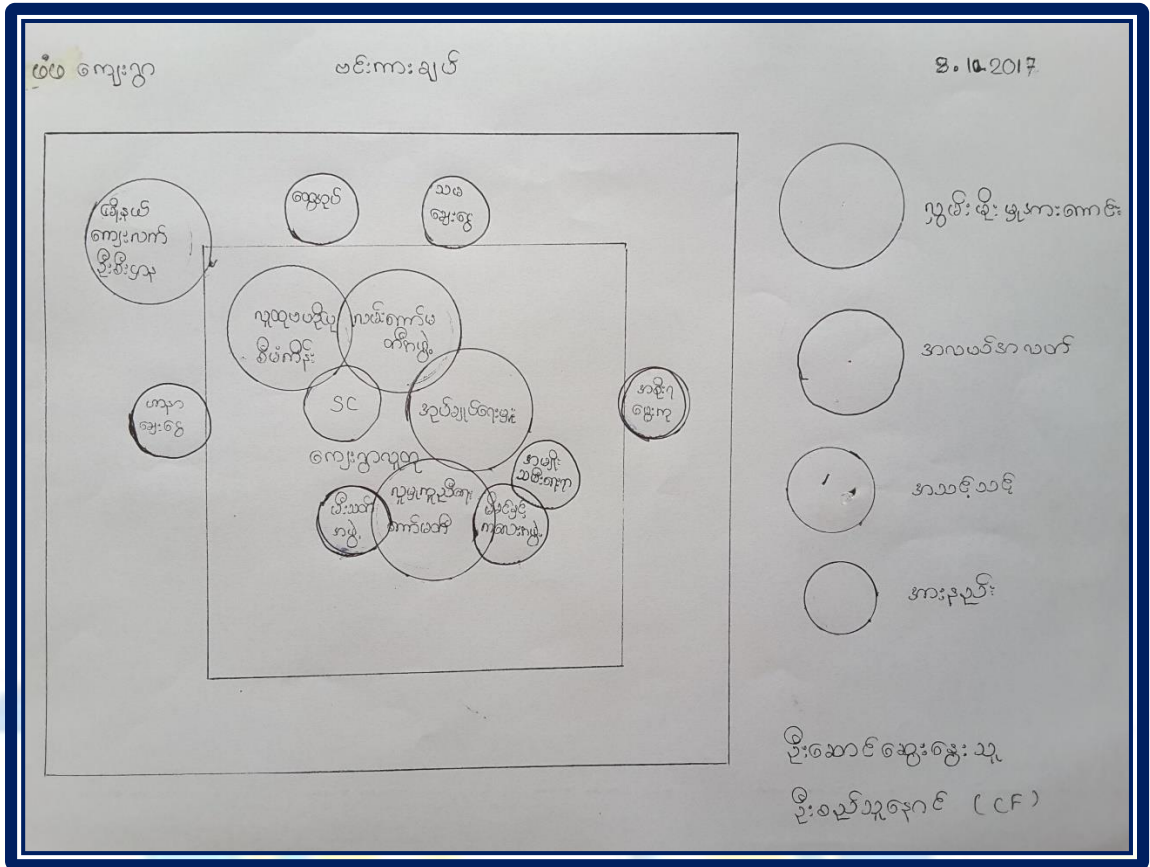 ကျေးရွာ
ဗင်းကားချပ်
8.12.2017
မြို့နယ်
ကျေးလက်
ဦးစီးဌာန
ချေးငွေ
လူထုဗဟိုပြု
စီမံကိန်း
လမ်းကော်မ
တီအဖွဲ့
SC
အုပ်ချုပ်ရေးမှူး
ဟာနာ
ချေးငွေ
အစိုးရ
ငွေးကု
ကျေးရွာလူထု
အမျိုး
သမီးရေးရာ
မီးသတ်
အဖွဲ့
လူမှုကူညီရေး
ကော်မတီ
မိခင်နှင့်
ကလေးအဖွဲ့
လွှမ်းမိုးမှုအားကောင်း
အလယ်အလတ်
အသင့်သင့်
အားနည်း
ဦးဆောင်ဆွေးနွေးသူ
ဦးစည်သူနောင် (CF)